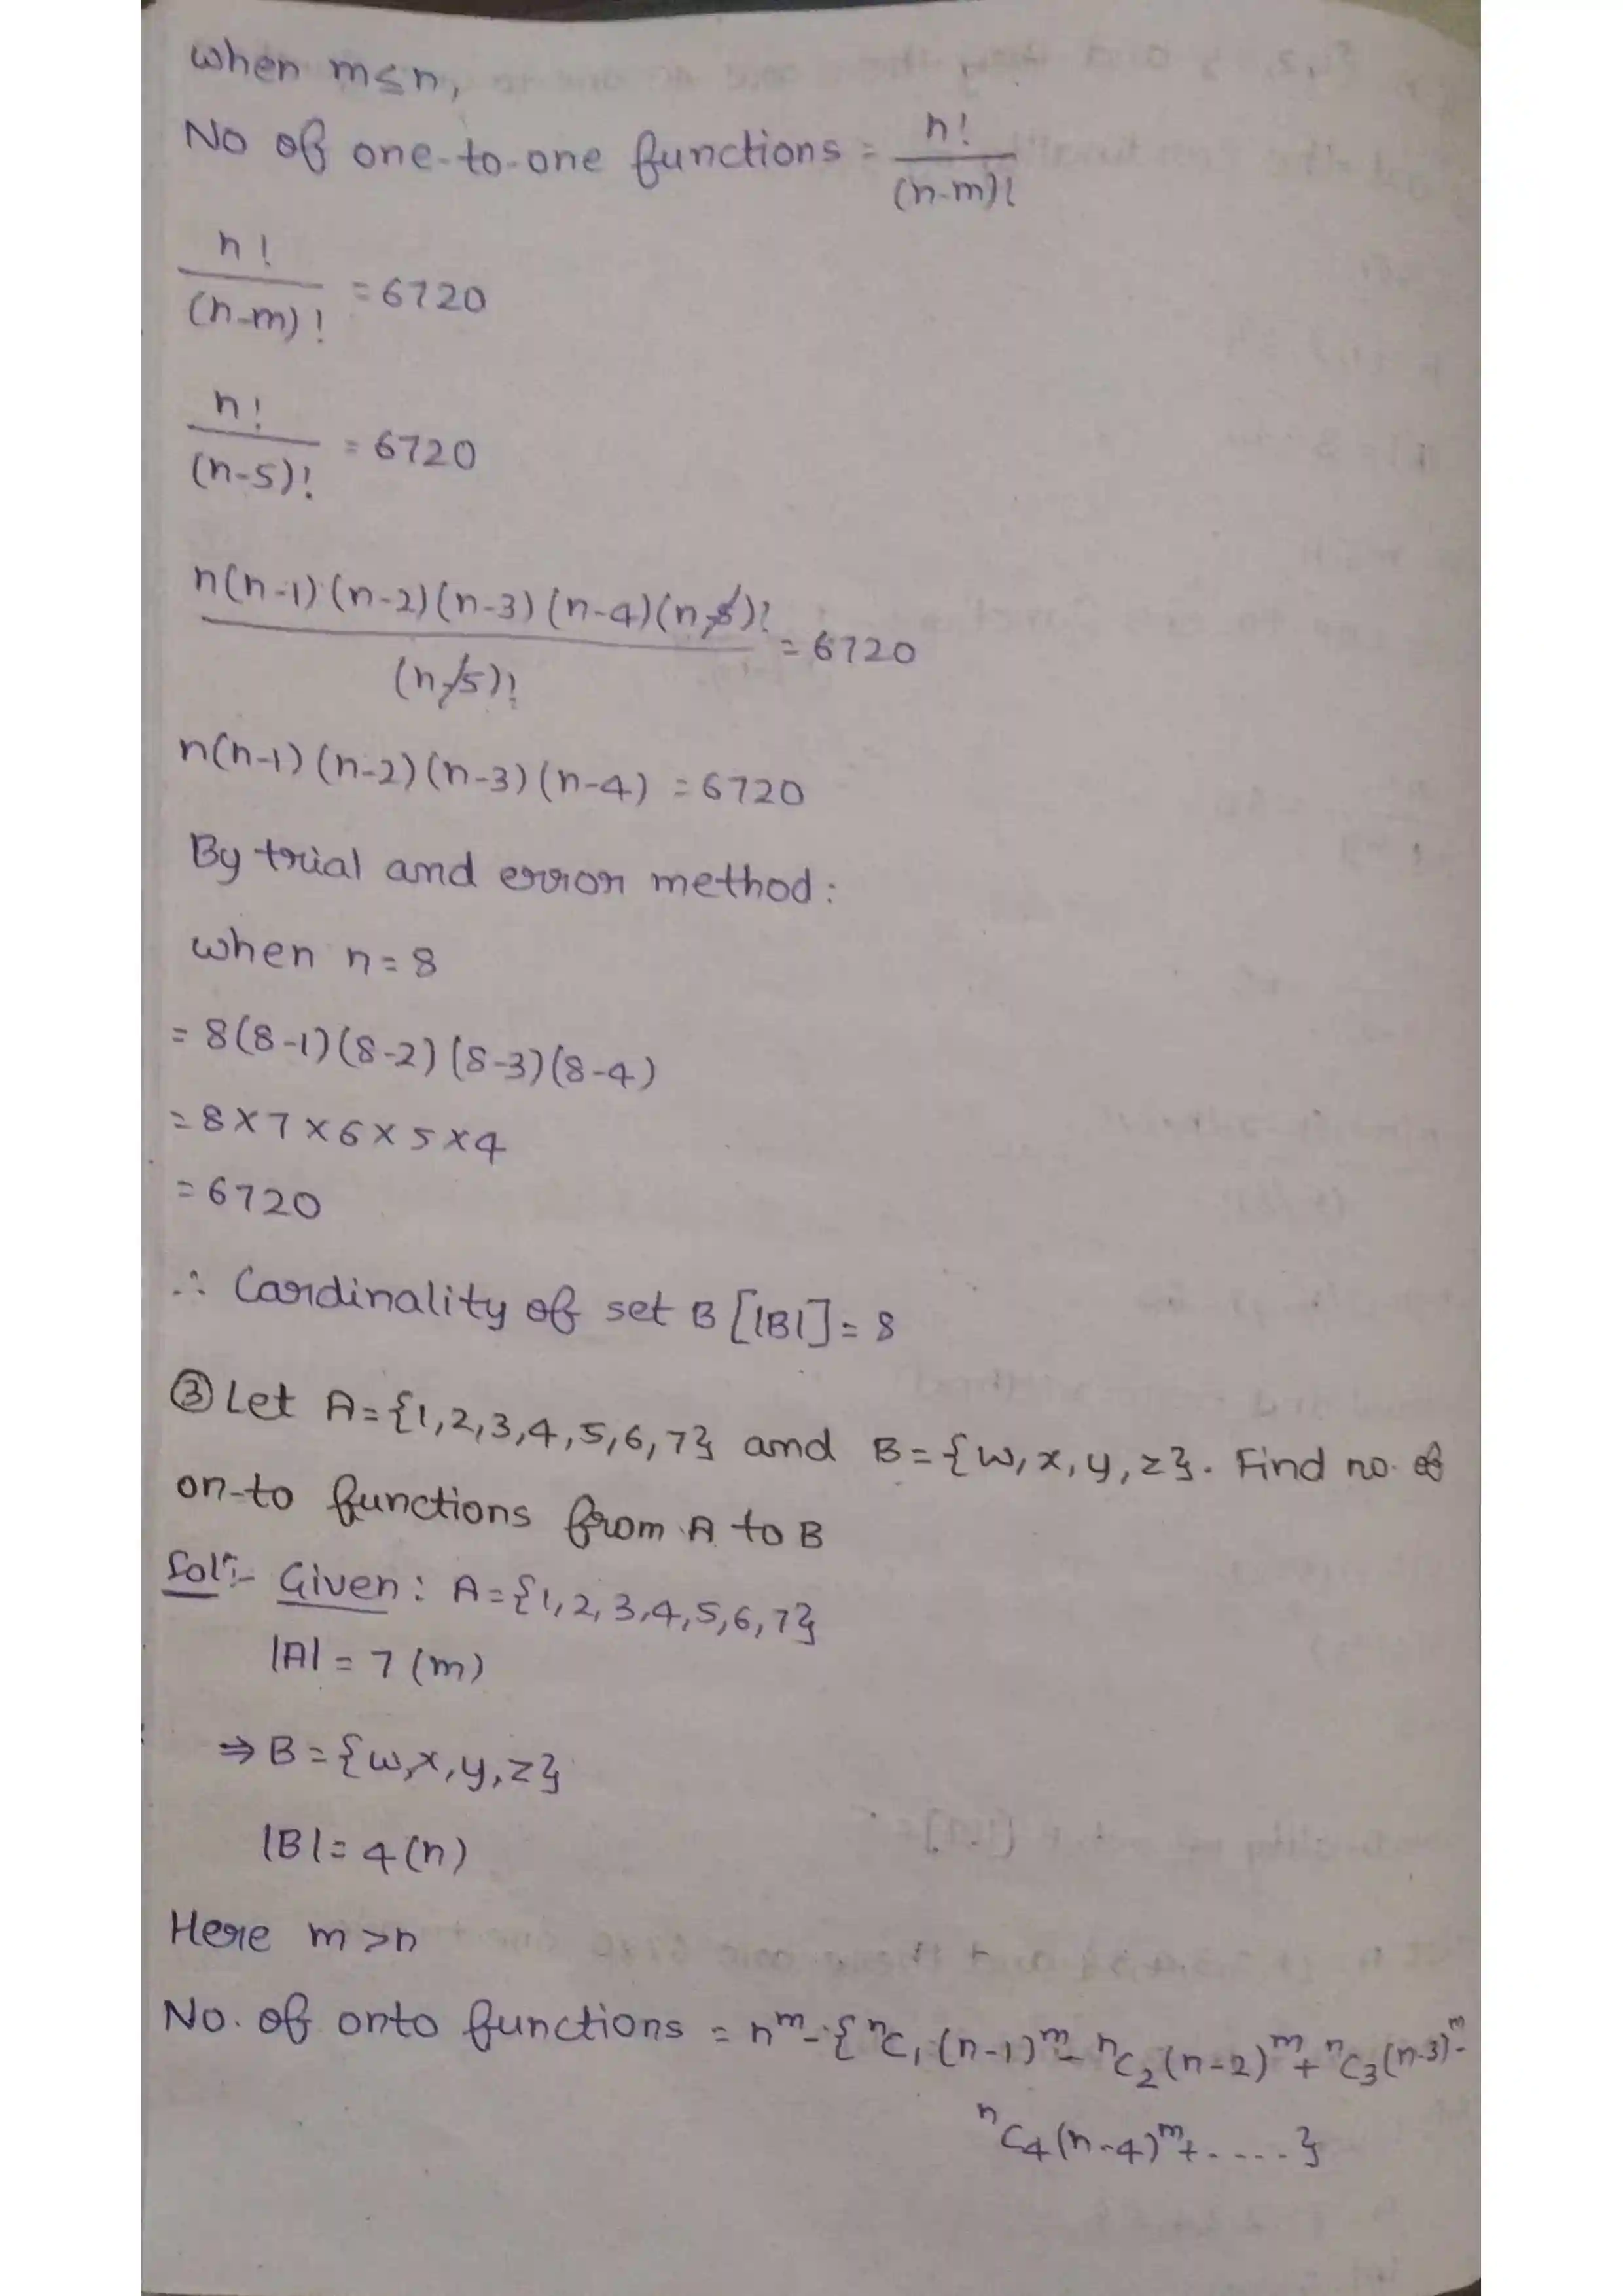 when m≤n,
No of one-to-one functions = n!/(n-m)!
n!/(n-m)! = 6720
n!/(n-5)! = 6720
n(n-1)(n-2)(n-3)(n-4)(n-5)!/(n-5)! = 6720
n(n-1)(n-2)(n-3)(n-4) = 6720
By trial and error method:
when n=8
= 8(8-1)(8-2)(8-3)(8-4)
= 8×7×6×5×4
= 6720
∴ Cardinality of set B [|B|] = 8
③ Let A={1,2,3,4,5,6,7} and B={w,x,y,z}. Find no. of
on-to functions from A to B
Sol:- Given: A={1,2,3,4,5,6,7}
|A| = 7 (m)
⇒ B={w,x,y,z}
|B| = 4(n)
Here m>n
No. of onto functions = nᵐ-{ⁿC₁(n-1)ᵐ-ⁿC₂(n-2)ᵐ+ⁿC₃(n-3)ᵐ-
ⁿC₄(n-4)ᵐ+.....}